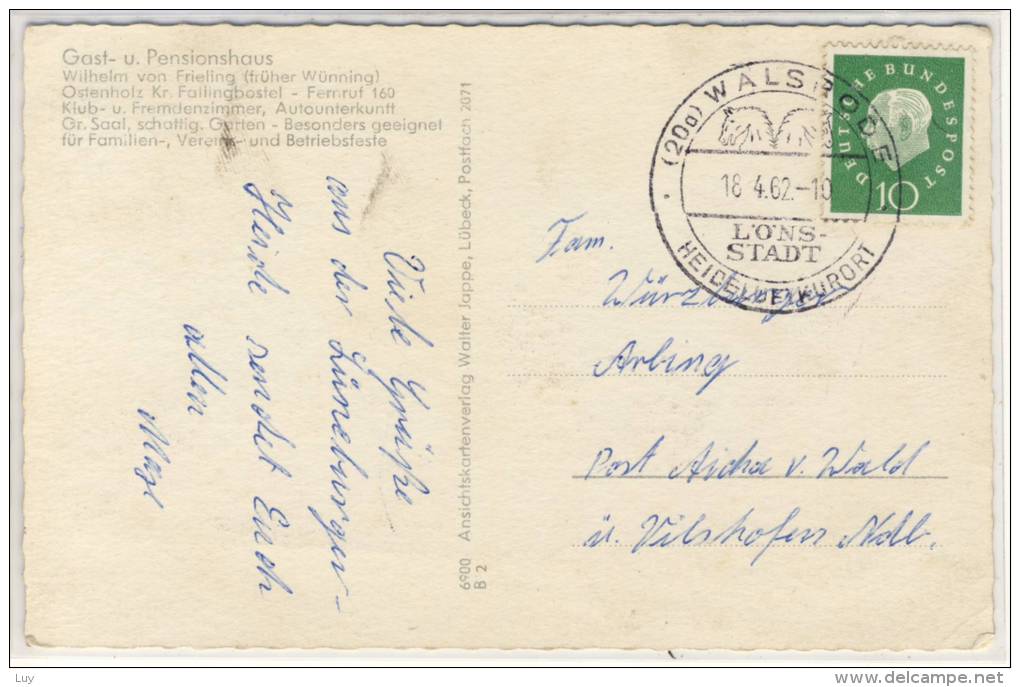 Gast- u. Pensionshaus
Wilhelm von Frieling (früher Wünning)
Ostenholz Kr. Fallingbostel - Fernruf 160
Klub- u. Fremdenzimmer, Autounterkunft
Gr. Saal, schattig. Garten - Besonders geeignet
für Familien-, Vereins- und Betriebsfeste
Viele Grüße
aus der Lüneburger-
Heide sendet Euch
allen
6900 Ansichtskartenverlag Walter Jappe, Lübeck, Postfach 2071
B 2
(20a) WALSRODE
18.4.62.-10
LÖNS-
STADT
HEIDELUFTKURORT
DEUTSCHE BUNDESPOST
10
Fam.
Würzberger
Arbing
Post Aicha v. Wald
ü. Vilshofen Ndb.
Luy
delcampe.net